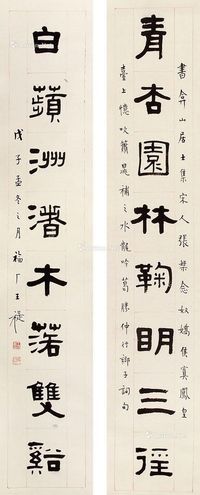 青杏園林鞠明三徑
書弇山居士集宋人張榘念奴嬌侯寘鳳皇
臺上憶吹簫晁補之水龍吟葛勝仲行鄉子詞句
白蘋洲渚木落雙谿
戊子孟冬之月福厂王禔